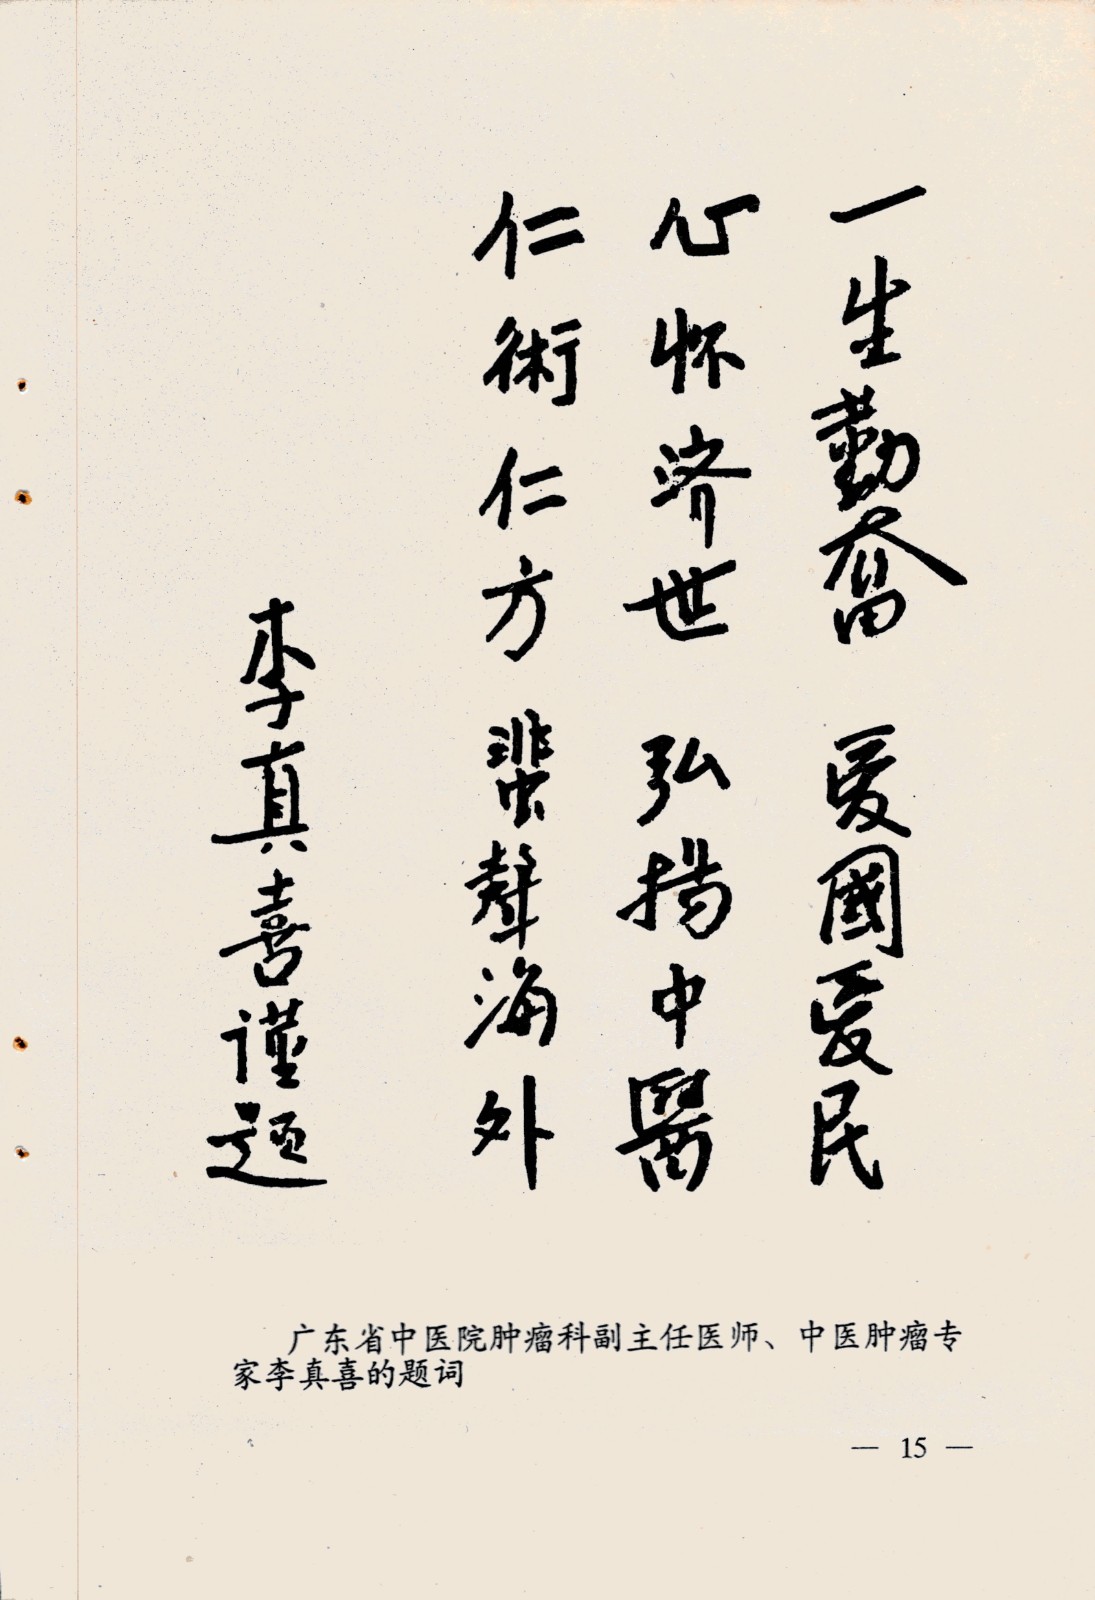 一生勤奮 爱國爱民
心怀济世 弘揚中醫
仁術仁方 蜚聲海外
李真喜谨题
广东省中医院肿瘤科副主任医师、中医肿瘤专
家李真喜的题词
— 15 —